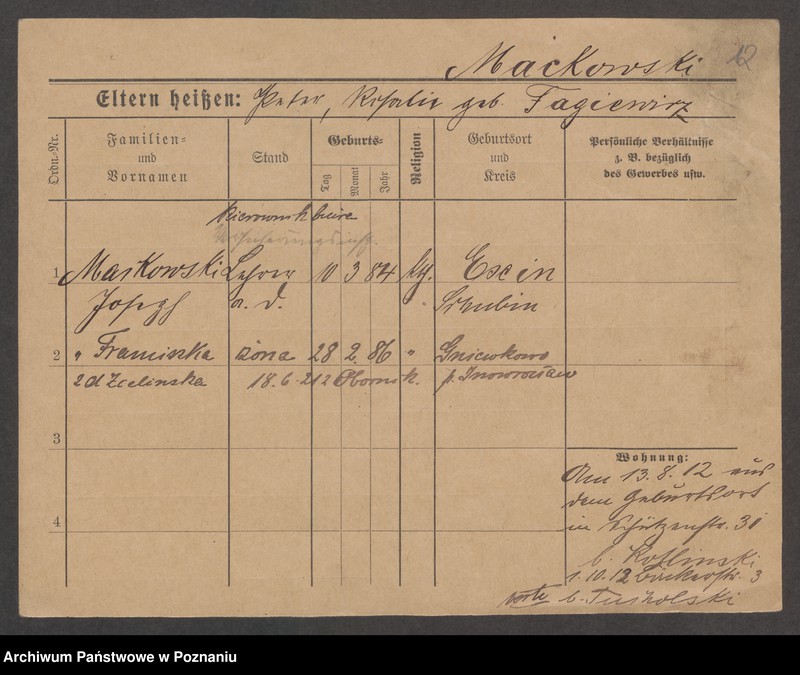 12
Mackowski
Eltern heißen: Peter, Rosalie geb. Fagiewicz
Ordn.-Nr.
Familien- und Vornamen
Stand
Geburts-
Tag
Monat
Jahr
Religion
Geburtsort und Kreis
Persönliche Verhältnisse z. B. bezüglich des Gewerbes usw.
kierownik biura
1 Maćkowski Lehrer 10 3 84 kth. Exin
Joseph a. D. Schubin
2 " Franciszka żona 28 2. 86 " Gniewkowo
z d Zielinska 18.6.212 Obornik. p. Inowrocław
3
4
Wohnung:
Am 13.8.12 aus
dem Geburtsort
in Schützenstr. 31
b. Koslinski
1.10.12 Bäckerstr. 3
b. Tucholski
Archiwum Państwowe w Poznaniu